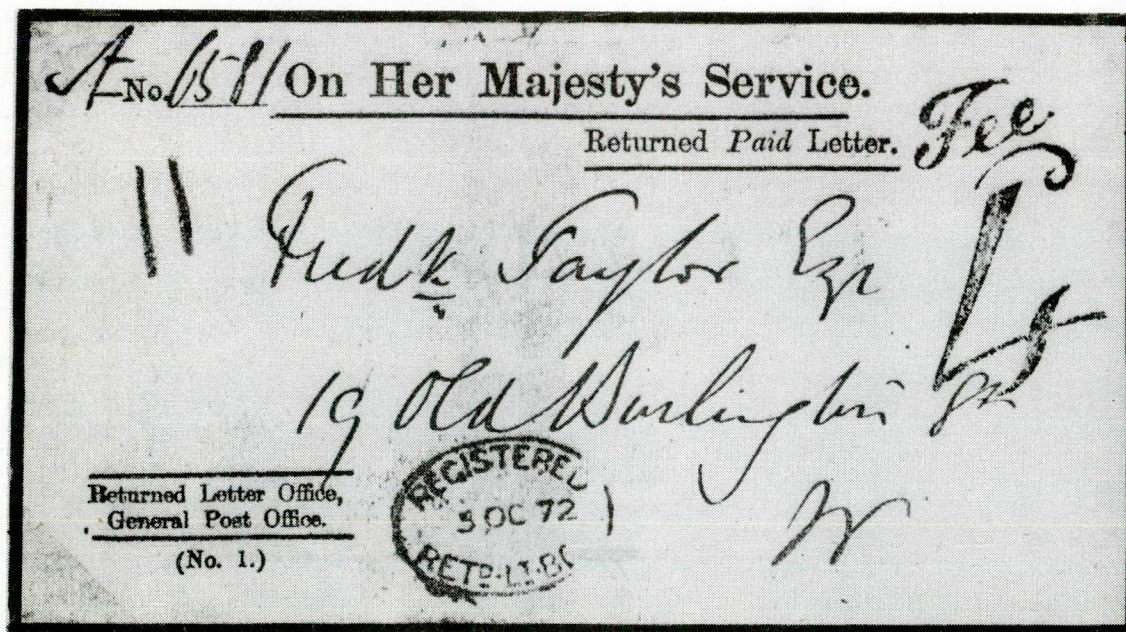 No. 6581 On Her Majesty's Service.
Returned Paid Letter.
Fee
11
Fredk Taylor Esqr
19 Old Burlington St
W
Returned Letter Office,
General Post Office.
(No. 1.)
REGISTERED
3 OC 72
RETD. LT. BC